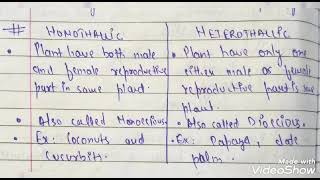 # HOMOTHALLIC
• Plant have both male
and female reproductive
part in same plant.
• Also called Monoecious
• Ex: Coconuts and
cucurbits.
HETEROTHALLIC
• Plant have only one
either male or female
reproductive part is same
plant.
• Also called Dioecious.
• Ex: Papaya, date
palm.
Made with
VideoShow